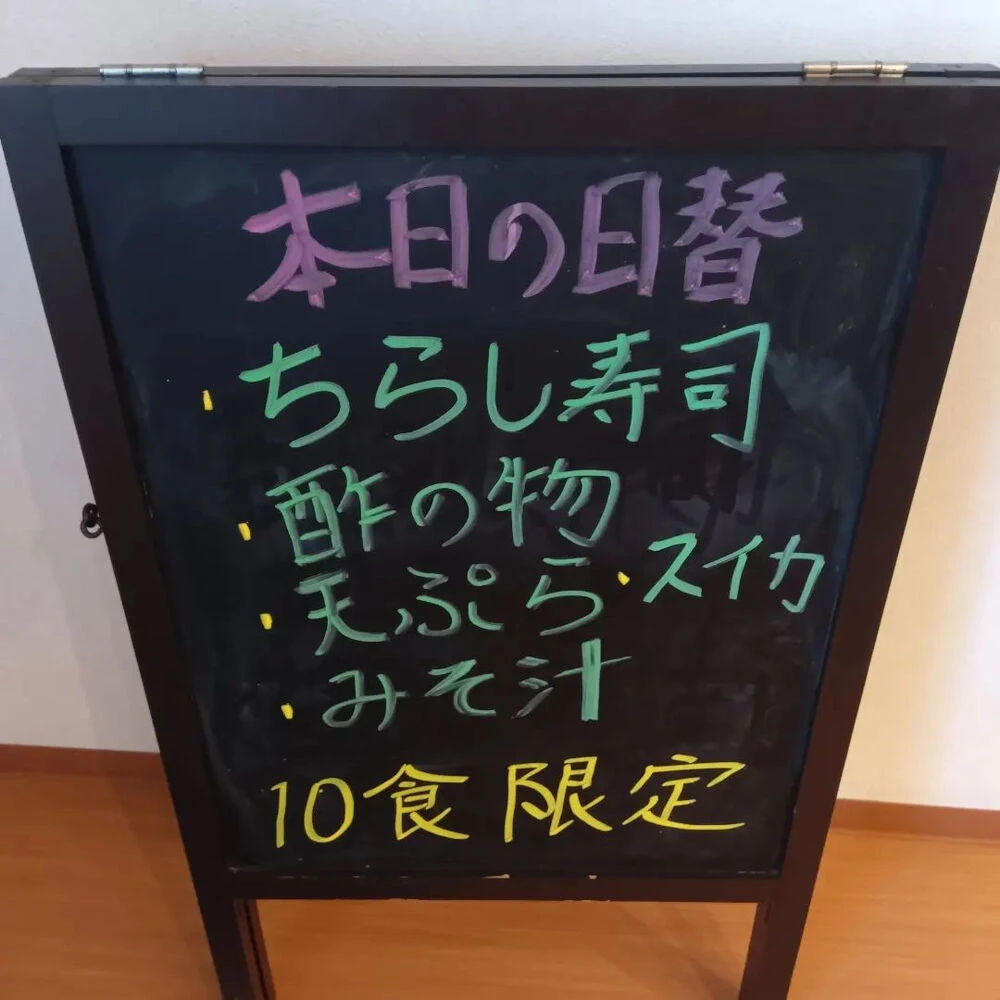 本日の日替
・ちらし寿司
・酢の物
・天ぷら ・スイカ
・みそ汁
10食 限定